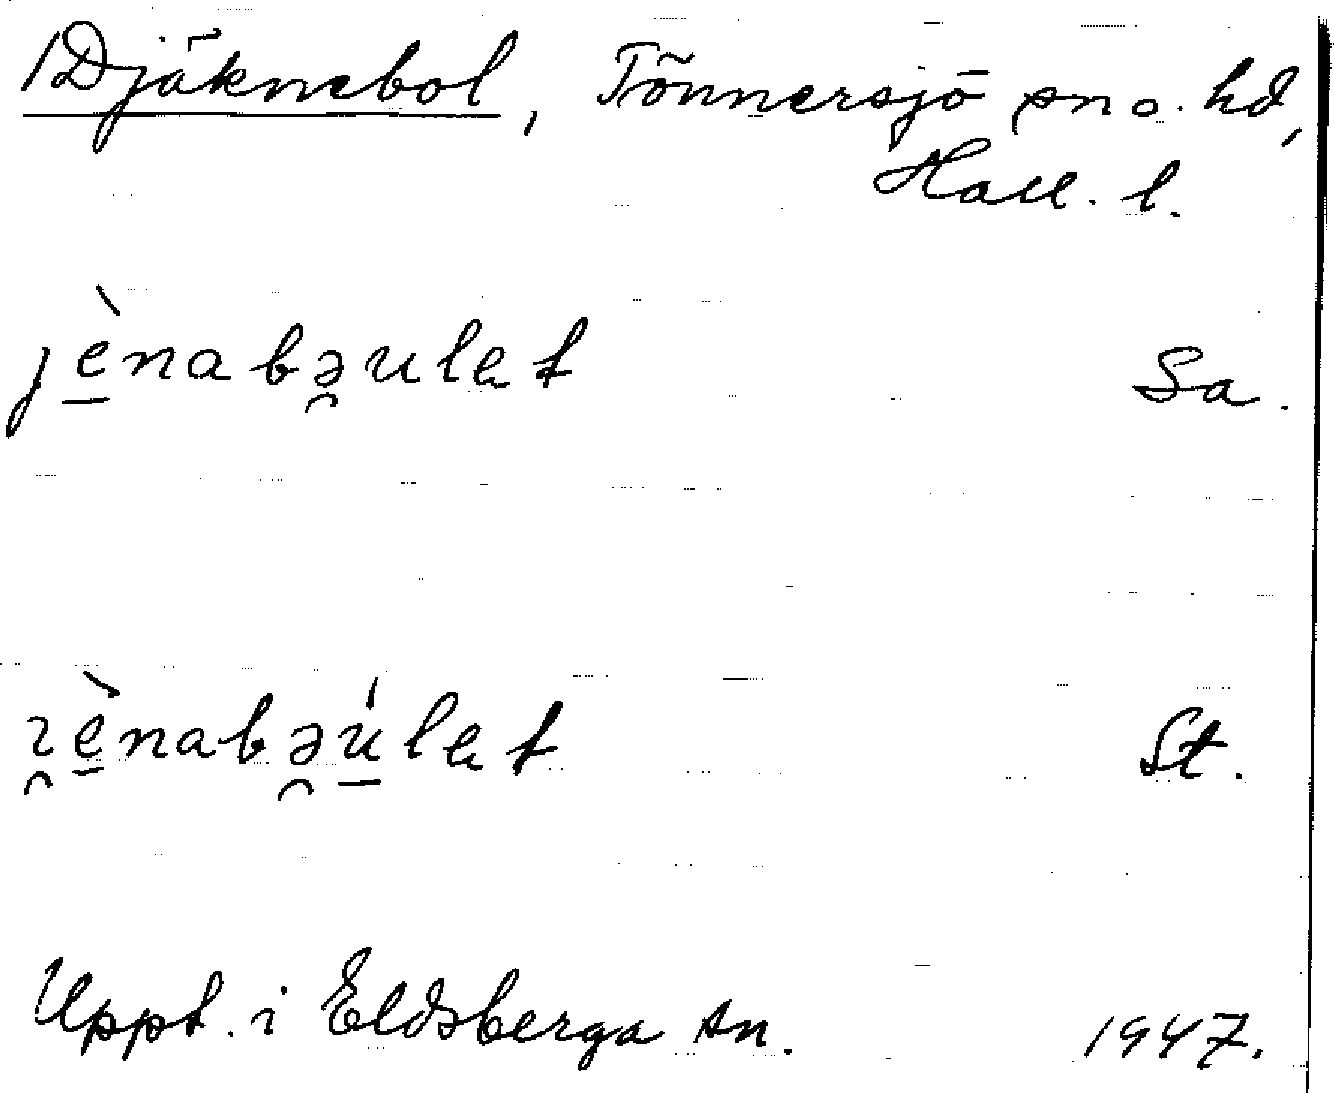 Djäknebol, Tönnersjö sn o. hd,
Hall. l.
jè̱nabə̯ulet Sa.
ɪ̯è̱nabə̯ú̱let St.
Uppt. i Eldsberga sn. 1947.